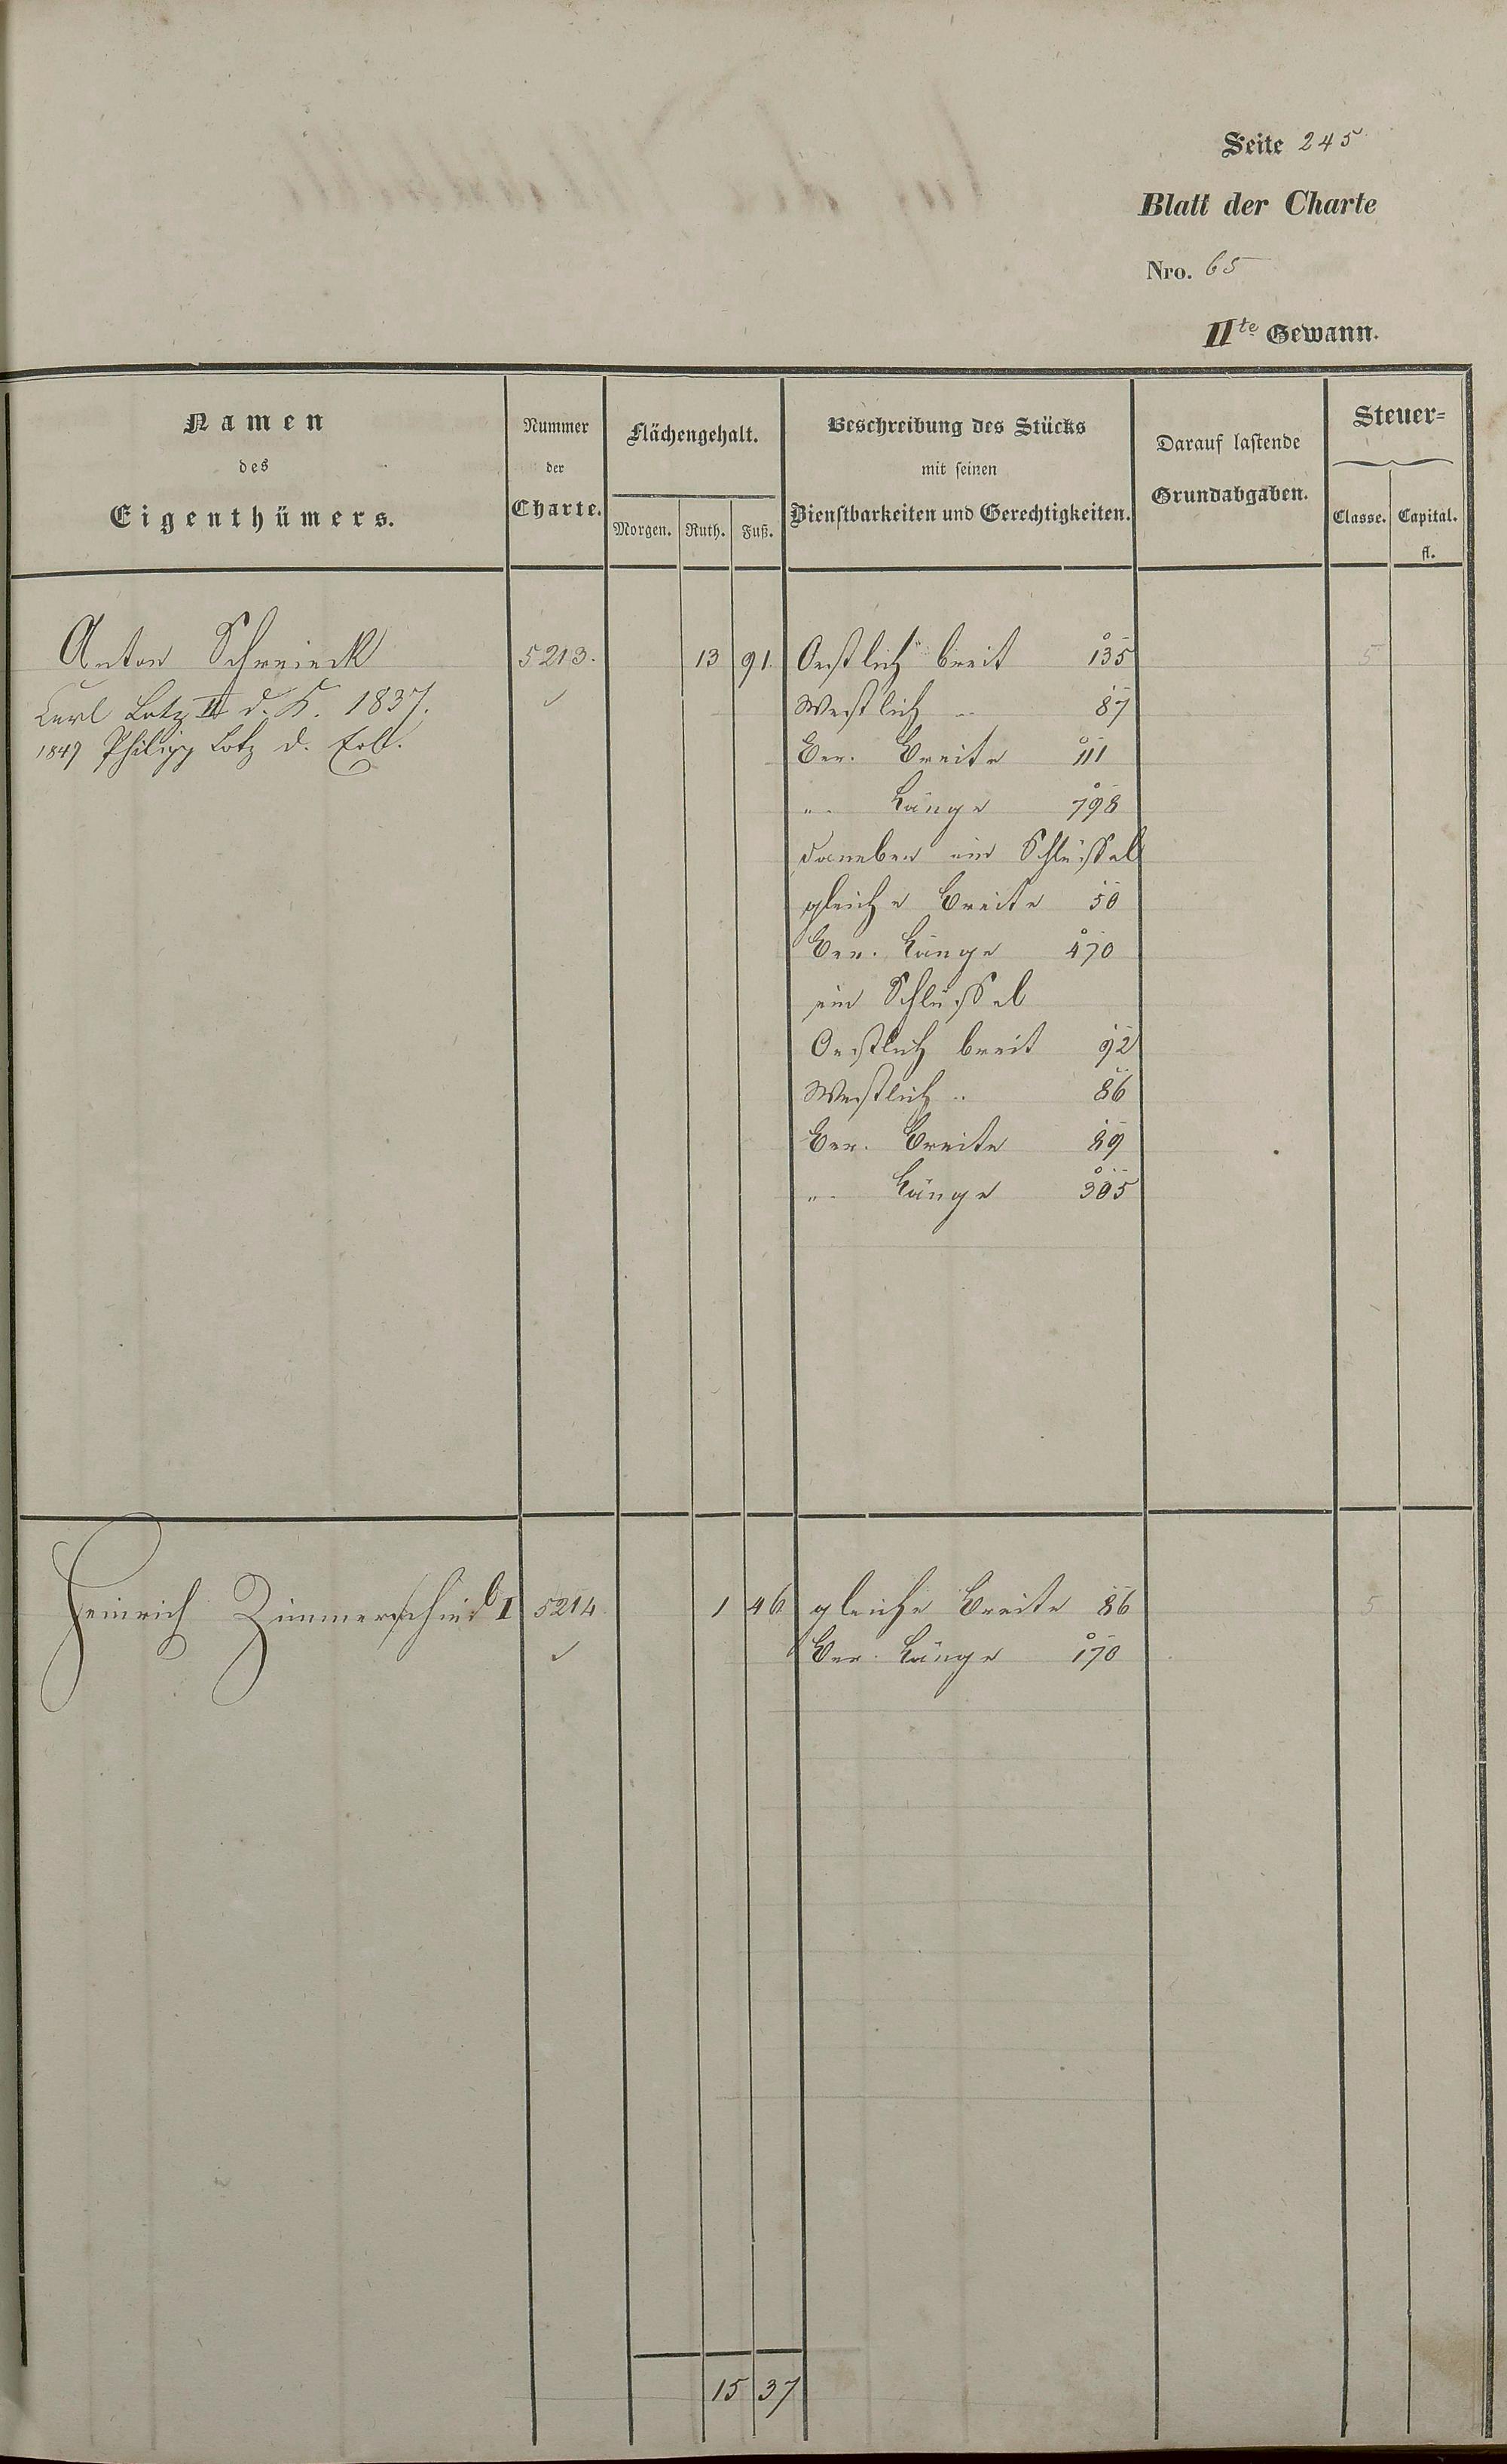 Seite 245
Blatt der Charte
Nro. 65
IIte Gewann.
Namen
des
Eigenthümers.
Nummer
der
Charte.
Flächengehalt.
Morgen. Ruth. Fuß.
Beschreibung des Stücks
mit seinen
Dienstbarkeiten und Gerechtigkeiten.
Darauf lastende
Grundabgaben.
Steuer-
Classe. Capital.
fl.
Anton Schreieck 5213. 13 91. Oestlich breit 135 5
Carl Lotz II d. K. 1837. Westlich " 87
1847 Philipp Lotz d. Erb. Ber. Breite 111
" Länge 798
daneben ein Schlüssel
gleiche Breite 50
Ber. Länge 470
ein Schlüssel
Oestlich breit 92
Westlich " 86
Ber. Breite 89
" Länge 305
Heinrich Zimmerschied I 5214 1 46 gleiche Breite 86 5
Ber. Länge 170
15 37